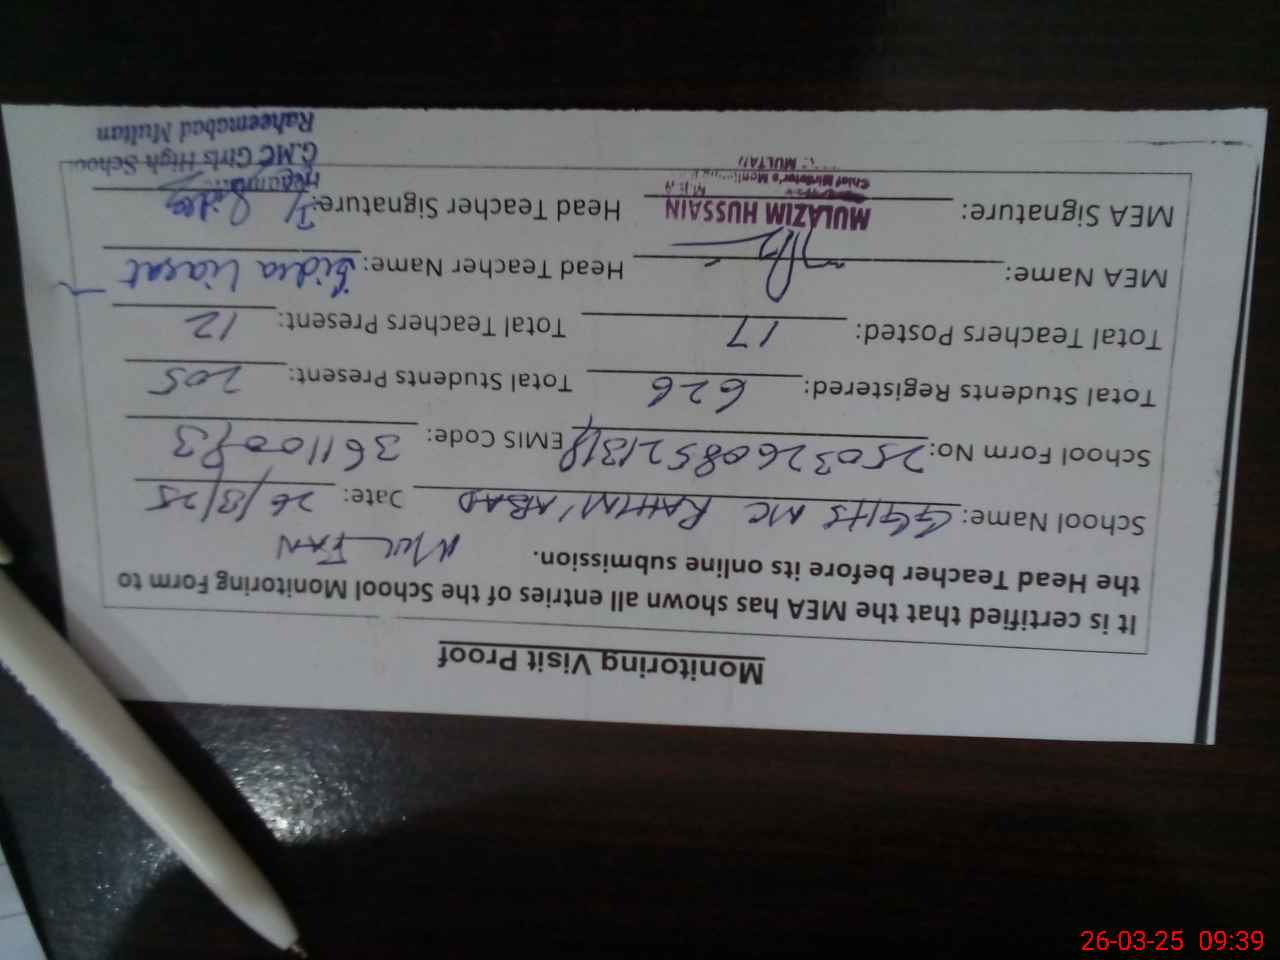 Monitoring Visit Proof
It is certified that the MEA has shown all entries of the School Monitoring Form to
the Head Teacher before its online submission. MULTAN
School Name: GGHS MC RAHIM ABAD Date: 26/3/25
School Form No: EMIS Code:
Total Students Registered: 626 Total Students Present: 205
Total Teachers Posted: 17 Total Teachers Present: 12
MEA Name: Head Teacher Name: Sidra Liacat
MEA Signature: Head Teacher Signature: Sidra
MULAZIM HUSSAIN
M.E.A
Chief Minister's
MULTAN
G.MC Girls High School
Raheemabad Multan
26-03-25 09:39